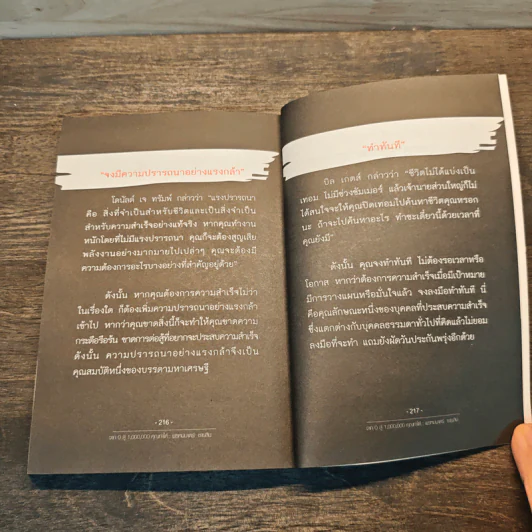 “จงมีความปรารถนาอย่างแรงกล้า”
โดนัลด์ เจ ทรัมพ์ กล่าวว่า “แรงปรารถนา
คือ สิ่งที่จำเป็นสำหรับชีวิตและเป็นสิ่งจำเป็น
สำหรับความสำเร็จอย่างแท้จริง หากคุณทำงาน
หนักโดยที่ไม่มีแรงปรารถนา คุณก็จะต้องสูญเสีย
พลังงานอย่างมากมายไปเปล่าๆ คุณจะต้องมี
ความต้องการอะไรบางอย่างที่สำคัญอยู่ด้วย”
ดังนั้น หากคุณต้องการความสำเร็จไม่ว่า
ในเรื่องใด ก็ต้องเพิ่มความปรารถนาอย่างแรงกล้า
เข้าไป หากว่าคุณขาดสิ่งนี้ก็จะทำให้คุณขาดความ
กระตือรือร้น ขาดการต่อสู้ที่อยากจะประสบความสำเร็จ
ดังนั้น ความปรารถนาอย่างแรงกล้าจึงเป็น
คุณสมบัติหนึ่งของบรรดามหาเศรษฐี
- 216 -
“ทำทันที”
บิล เกตส์ กล่าวว่า “ชีวิตไม่ได้แบ่งเป็น
เทอม ไม่มีช่วงซัมเมอร์ แล้วเจ้านายส่วนใหญ่ก็ไม่
ได้สนใจจะให้คุณปิดเทอมไปค้นหาชีวิตคุณหรอก
นะ ถ้าจะไปค้นหาอะไร ทำซะเดี๋ยวนี้ด้วยเวลาที่
คุณยังมี”
ดังนั้น คุณจงทำทันที ไม่ต้องรอเวลาหรือ
โอกาส หากว่าต้องการความสำเร็จเมื่อมีเป้าหมาย
มีการวางแผนหรือมั่นใจแล้ว จงลงมือทำทันที นี่
คือคุณลักษณะหนึ่งของบุคคลที่ประสบความสำเร็จ
ซึ่งแตกต่างกับบุคคลธรรมดาทั่วไปที่คิดแล้วไม่ยอม
ลงมือที่จะทำ แถมยังผัดวันประกันพรุ่งอีกด้วย
- 217 -